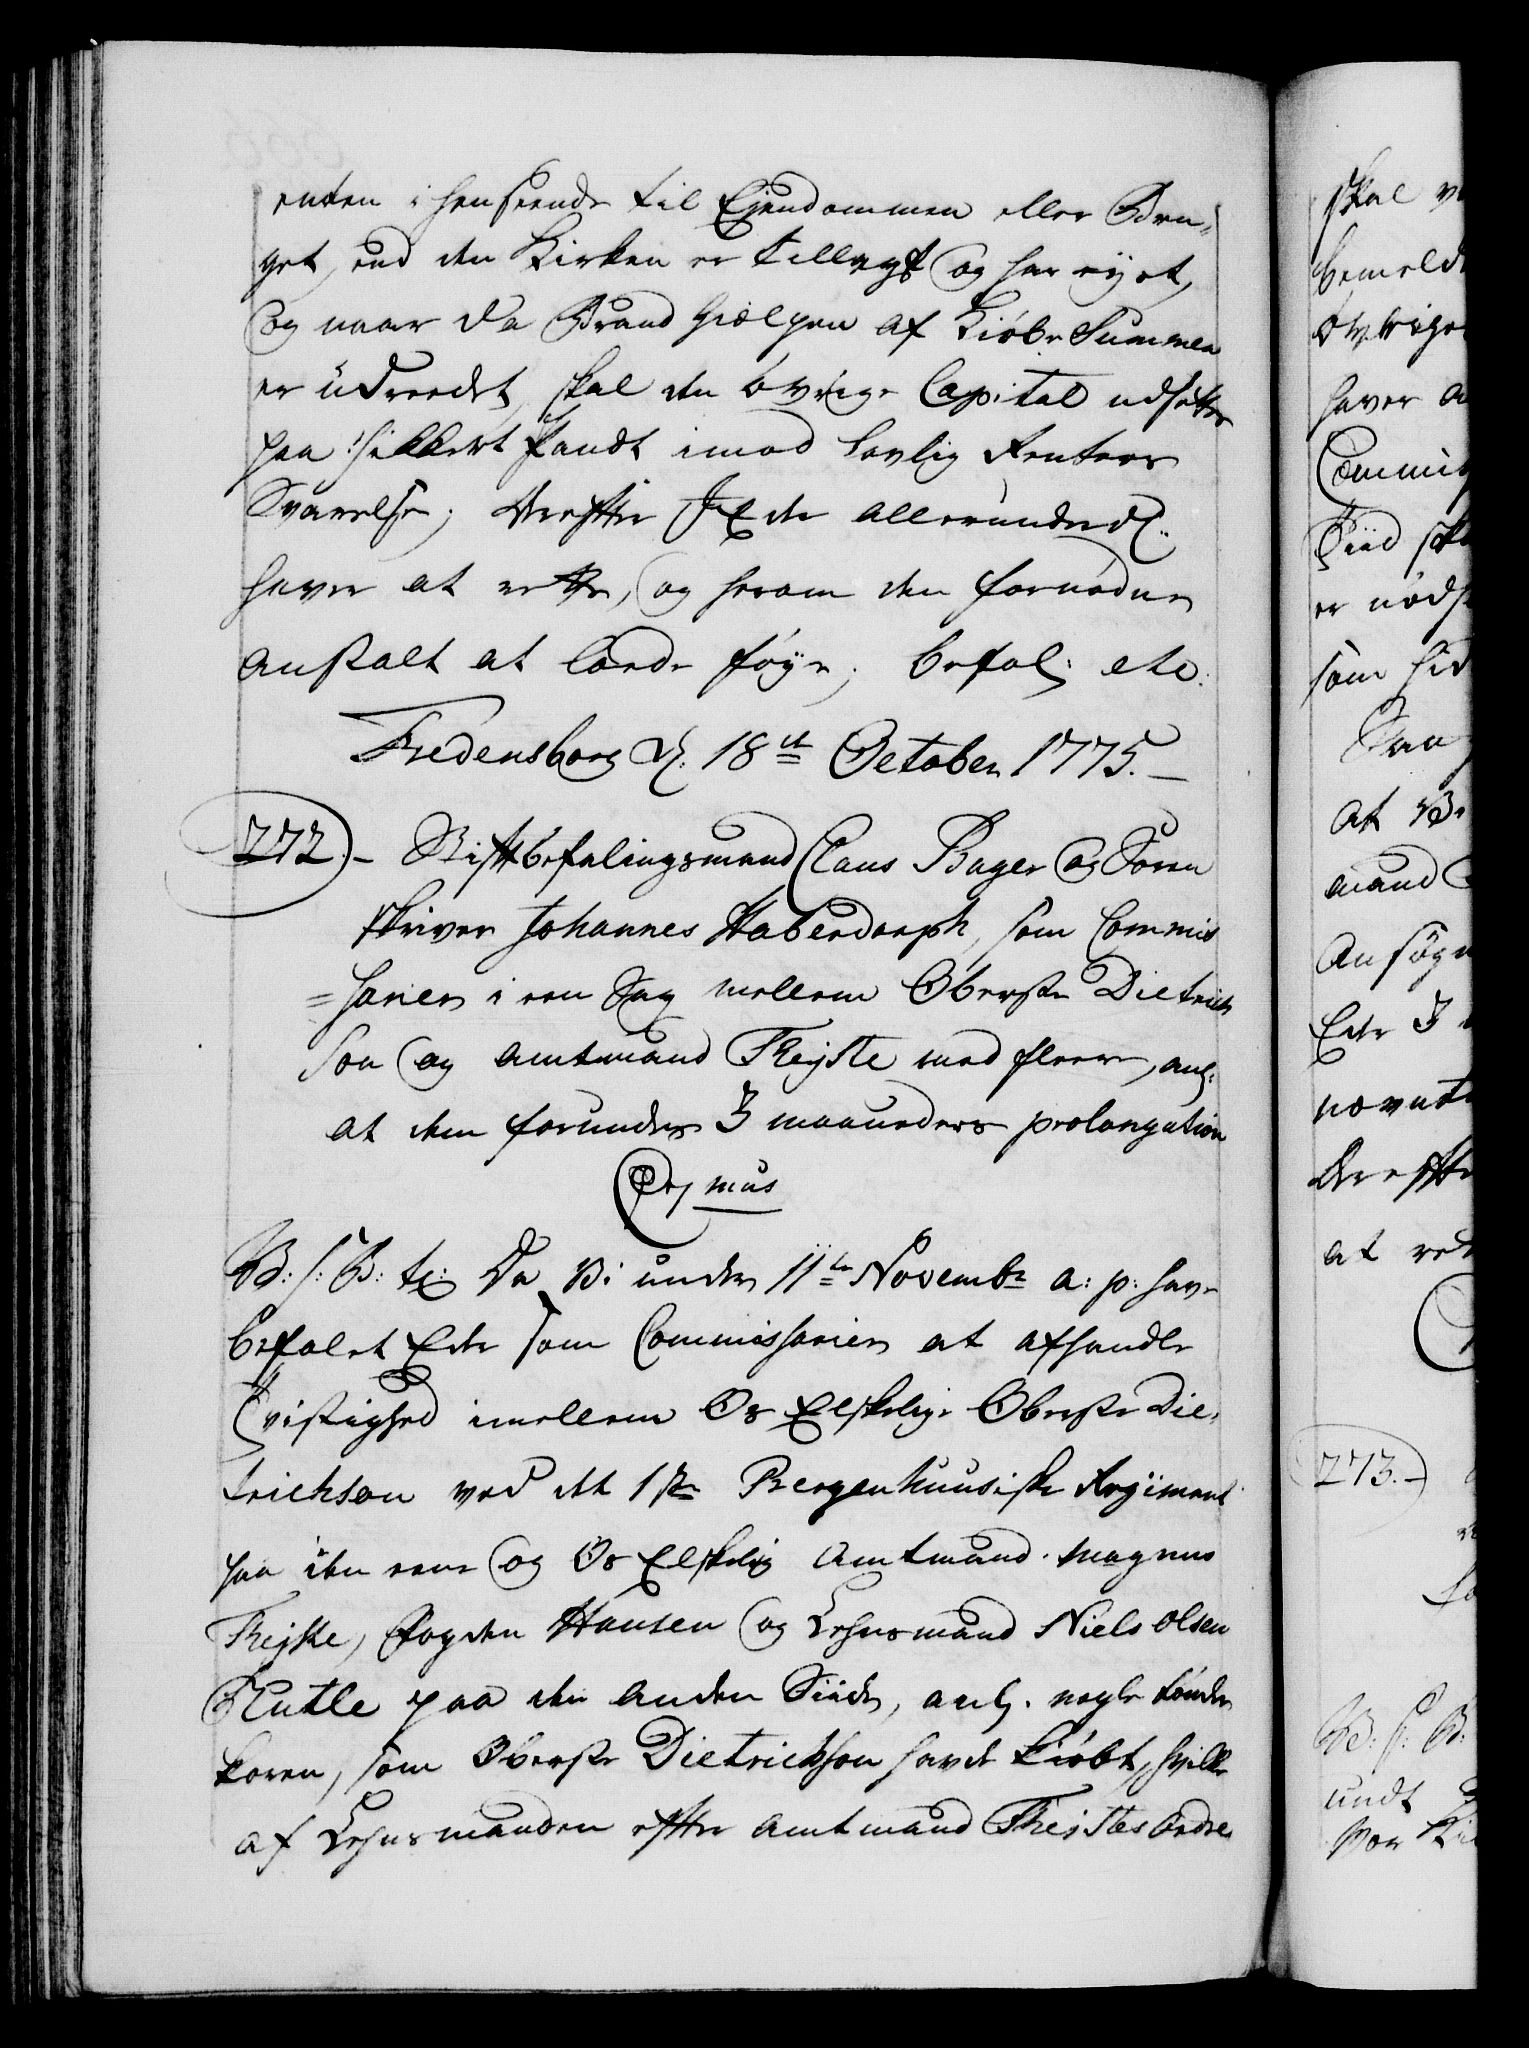 enten i henseende til Ejendommen eller Bru¬
get, end den Kirken er tillagt og har ejet,
og naar da Brand Hielpen af Kiøbe Summen
er udreedet, skal den øvrige Capital udsættes
paa sikkert Pandt imod lovlig Renters
Svarelse; Derefter I Eder allerunderd:
haver at rette, og herom den fornødne
anstalt at lade føye; befal: etc:
Fredensborg d: 18de October 1775.
272.- Stiftbefalingsmand Claus Bager og Soren
skriver Johannes Haberdorph, som Commis
=sarier i een Sag mellem Oberste Dietrich
son og Amtmand Thejste med fleere, ang:
at dem forundes 3 maaneders prolongation
C: 7mus
V: s: G: t: Da Vi under 11te Novembr a: p: have
befalet Eder som Commissarier at afhandle
Tvistighed imellem Os Elskelige Oberste Die¬
trichson ved det 1ste Bergenhuusiske Regiment
paa den eene og Os Elskelig Amtmand Magnus
Thejste, Fogden Hansen og Lehnsmand Niels Olsen
Rutle paa den anden Siide, ang. nogle tønder
korn, som Oberste Dietrichson havde kiøbt, hvilke
af Lehnsmanden efter Amtmand Thejstes Ordre
skal
bemeldt
øvrige
haver
Tiid
er
som
at
mand
Ansøgn
Eder 3
nævnte
derefter
at
273.-
V: s: G:
undt
Vor